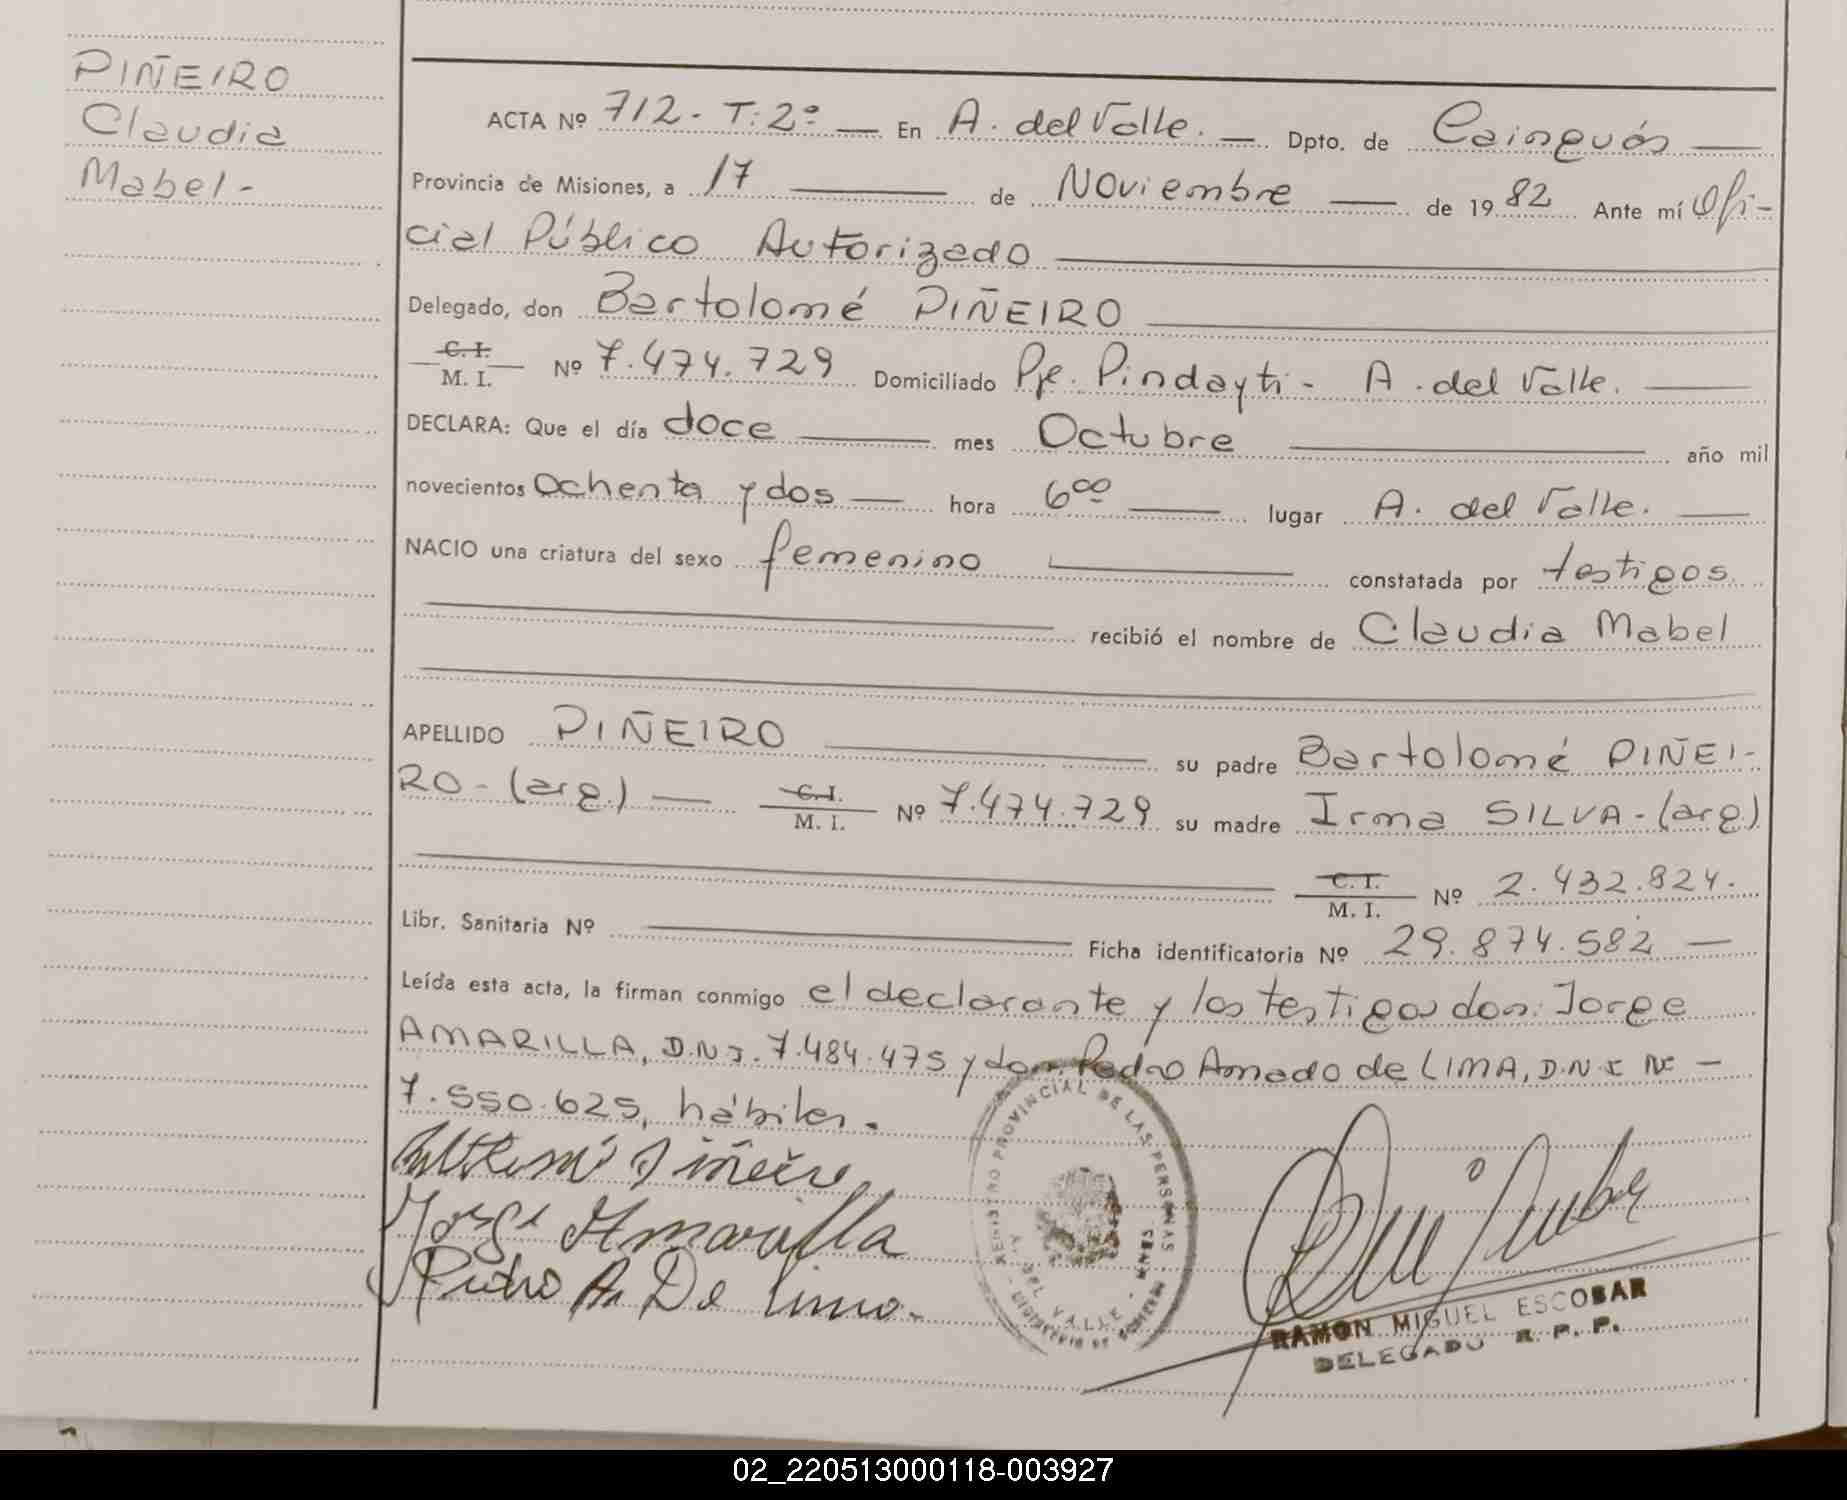 PIÑEIRO
Claudia
Mabel-
ACTA Nº 712- T: 2º — En A. del Valle. — Dpto. de Cainguás —
Provincia de Misiones, a 17 — de Noviembre — de 1982 Ante mí Ofi-
cial Público Autorizado —
Delegado, don Bartolomé PIÑEIRO —
C. I.
M. I. Nº 7.474.729 Domiciliado Pje. Pindayti - A. del Valle. —
DECLARA: Que el día doce — mes Octubre — año mil
novecientos Ochenta y dos — hora 6oo — lugar A. del Valle. —
NACIO una criatura del sexo femenino — constatada por testigos
— recibió el nombre de Claudia Mabel
APELLIDO PIÑEIRO — su padre Bartolomé PIÑEI-
RO - (arg.) — C. I. M. I. Nº 7.474.729 su madre Irma SILVA - (arg)
— C. I. M. I. Nº 2.432.824.
Libr. Sanitaria Nº — Ficha identificatoria Nº 29.874.582 —
Leída esta acta, la firman conmigo el declarante y los testigos don: Jorge
AMARILLA, D.N.I. 7.484.475 y don Pedro Amado de LIMA, D.N.I Nº —
7.550.625, hábiles.
Piñeiro
Jorge Amarilla
Pedro A. De Lima.
REGISTRO PROVINCIAL DE LAS PERSONAS
A. DEL VALLE
RAMON MIGUEL ESCOBAR
DELEGADO R. P. P.
02_220513000118-003927